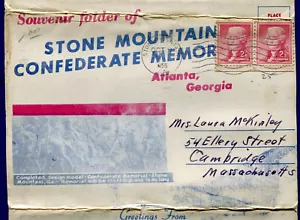 Souvenir folder of
PLACE
STONE MOUNTAIN
CONFEDERATE MEMOR
Atlanta,
Georgia
2
2
Mrs Laura McKinley
54 Ellery Street
Cambridge
Massachusetts
Completed Design Model - Confederate Memorial, Stone
Greetings From